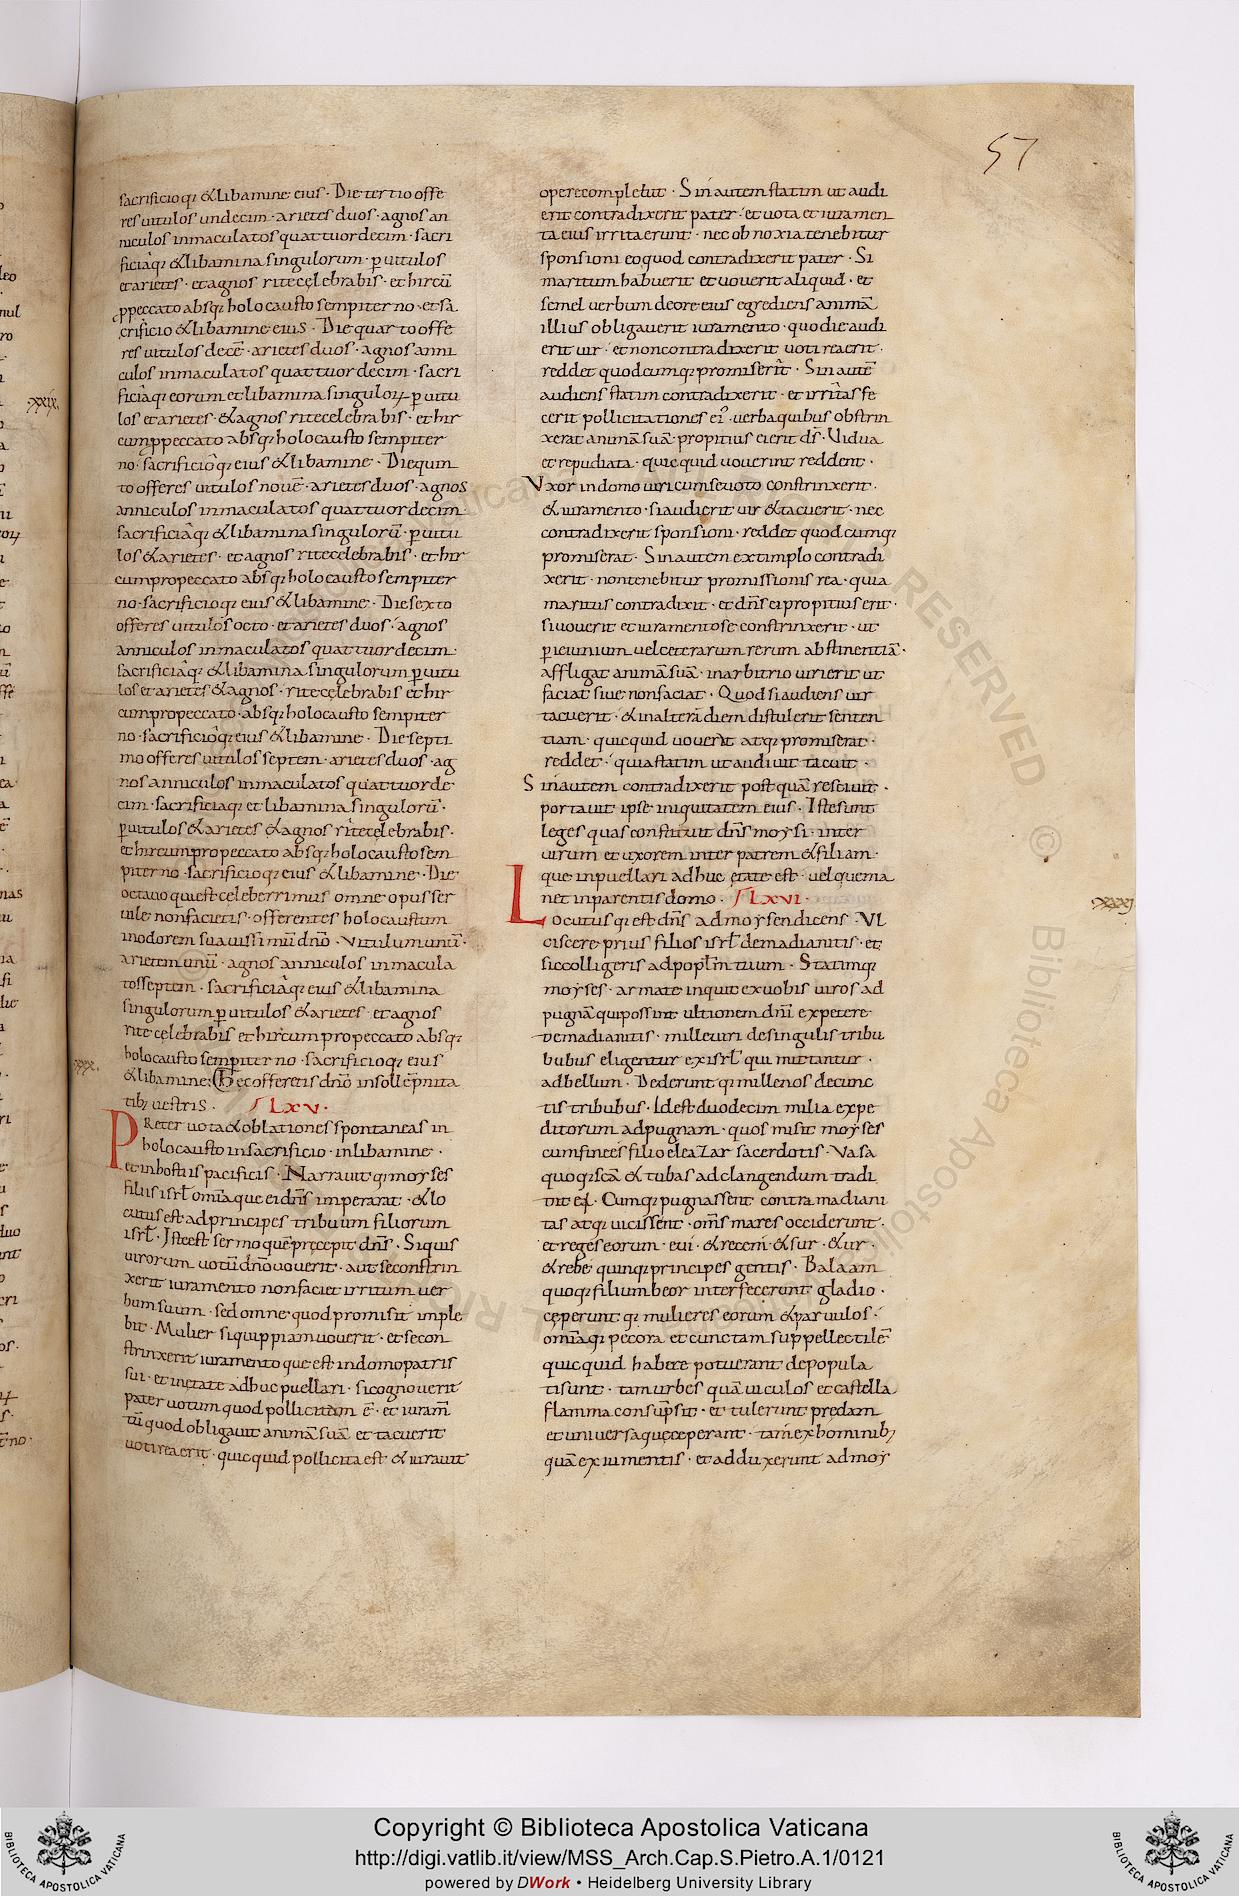 57
sacrificioq; & libamine eius · Die tertio offe
res uitulos undecim · arietes duos · agnos an
niculos inmaculatos quattuordecim · sacri
ficiaq; & libamina singulorum · p uitulos
et arietes · et agnos rite celebrabis · et hircū
ppeccato absq; holocausto sempiterno · et sa
crificio & libamine eius · Die quarto offe
res uitulos decē · arietes duos · agnos anni
culos inmaculatos quattuordecim · sacri
ficiaq; eorum et libamina singuloꝝ p uitu
los et arietes · & agnos rite celebrabis · et hir
cum ppeccato absq; holocausto sempiter
no · sacrificioq; eius & libamine · Die quin
to offeres uitulos nouē · arietes duos · agnos
anniculos inmaculatos quattuordecim ·
sacrificiaq; & libamina singulorū · p uitu
los & arietes · et agnos rite celebrabis · et hir
cum propeccato absq; holocausto sempiter
no · sacrificioq; eius & libamine · Die sexto
offeres uitulos octo · et arietes duos · agnos
anniculos inmaculatos quattuordecim ·
sacrificiaq; & libamina singulorum p uitu
los et arietes & agnos · rite celebrabis et hir
cum propeccato · absq; holocausto sempiter
no · sacrificioq; eius & libamine · Die septi
mo offeres uitulos septem · arietes duos · ag
nos anniculos inmaculatos quattuorde
cim · sacrificiaq; et libamina singulorū ·
p uitulos & arietes & agnos rite celebrabis ·
et hircum propeccato absq; holocausto sem
piterno · sacrificioq; eius & libamine · Die
octauo qui est celeberrimus omne opus ser
uile non facietis · offerentes holocaustum
inodorem suauissimū dn̄o · Vitulum unū ·
arietem unū · agnos anniculos inmacula
tos septem · sacrificiaq; eius & libamina
singulorum p uitulos & arietes · et agnos
rite celebrabis et hircum propeccato absq;
holocausto sempiterno · sacrificioq; eius
& libamine; Hęc offeretis dn̄o in sollēpnita
tib; uestris · LXV ·
Preter uota & oblationes spontaneas in
holocausto in sacrificio · in libamine ·
et in hostiis pacificis · Narrauitq; moyses
filiis isrł omīa que ei dn̄s imperarat · & lo
cutus est ad principes tribuum filiorum
isrł · Iste est sermo quē pręcepit dn̄s · Siquis
uirorum uotū dn̄o uouerit · aut se constrin
xerit iuramento non faciet irritum uer
bum suum · sed omne quod promisit imple
bit · Mulier si quippiam uouerit · et se con
strinxerit iuramento que est in domo patris
sui · et in etate adhuc puellari · si cognouerit
pater uotum quod pollicitam ē · et iuram̄
tū quod obligauit animā suā et tacuerit
uoti rea erit · quicquid pollicita est & iurauit
opere complebit · Sin autem statim ut audi
erit contradixerit pater · et uota et iuramen
ta eius irrita erunt · nec obnoxia tenebitur
sponsioni eo quod contradixerit pater · Si
maritum habuerit et uouerit aliquid · et
semel uerbum de ore eius egrediens animā
illius obligauerit iuramento · quo die audi
erit uir · et non contradixerit uoti rea erit ·
reddet quodcumq; promiserit · Sin autē
audiens statim contradixerit · et irritas fe
cerit pollicitationes ei᾿ · uerba quibus obstrin
xerat animā suā · propitius ei erit ds̄ · Vidua
et repudiata · quicquid uouerint reddent ·
Vxor in domo uiri cum se uoto constrinxerit ·
& iuramento · si audierit uir & tacuerit · nec
contradixerit sponsioni · reddet quodcumq;
promiserat · Sin autem extimplo contradi
xerit · non tenebitur promissionis rea · quia
maritus contradixit · et dn̄s ei propitius erit ·
si uouerit et iuramento se constrinxerit · ut
p ieiunium uel ceterarum rerum abstinentiā ·
affligat animā suā · in arbitrio uiri erit ut
faciat siue non faciat · Quod si audiens uir
tacuerit · & in alterā diem distulerit senten
tiam · quicquid uouerit atq; promiserat ·
reddet · quia statim ut audiuit tacuit ·
Sin autem contradixerit postquā resciuit ·
portauit ipse iniquitatem eius · Iste sunt
leges quas constituit dn̄s moysi · inter
uirum et uxorem inter patrem & filiam ·
que in puellari adhuc ętate est · uel que ma
net in parentis domo · LXVI ·
Locutusq; est dn̄s ad moysen dicens · Vl
ciscere prius filios isrł de madianitis · et
sic colligeris ad popłm tuum · Statimq;
moyses · armate inquit ex uobis uiros ad
pugnā qui possint ultionem dn̄i expetere
de madianitis · mille uiri de singulis tribu
bubus eligentur ex isrł qui mittantur ·
ad bellum · Dederuntq; millenos de cunc
tis tribubus · Id est duodecim milia expe
ditorum ad pugnam · quos misit moyses
cum finees filio eleazar sacerdotis · Vasa
quoq; scā & tubas ad clangendum tradi
dit ei · Cumq; pugnassent contra madiani
tas atq; uicissent · om̄s mares occiderunt ·
et reges eorum · eui · & recem · & sur · & ur ·
& rebe quinq; principes gentis · Balaam
quoq; filium beor interfecerunt gladio ·
cęperuntq; mulieres eorum & paruulos ·
omīaq; pecora et cunctam suppellectilē
quicquid habere potuerant depopula
ti sunt · tam urbes quā uiculos et castella
flamma consūpsit · et tulerunt prędam
et uniuersa quę ceperant · tam ex hominib;
quā ex iumentis · et adduxerunt ad moy
xxix.
xxx.
xxxj
Copyright © Biblioteca Apostolica Vaticana
http://digi.vatlib.it/view/MSS_Arch.Cap.S.Pietro.A.1/0121
powered by DWork • Heidelberg University Library
BIBLIOTECA APOSTOLICA VATICANA
BIBLIOTECA APOSTOLICA VATICANA